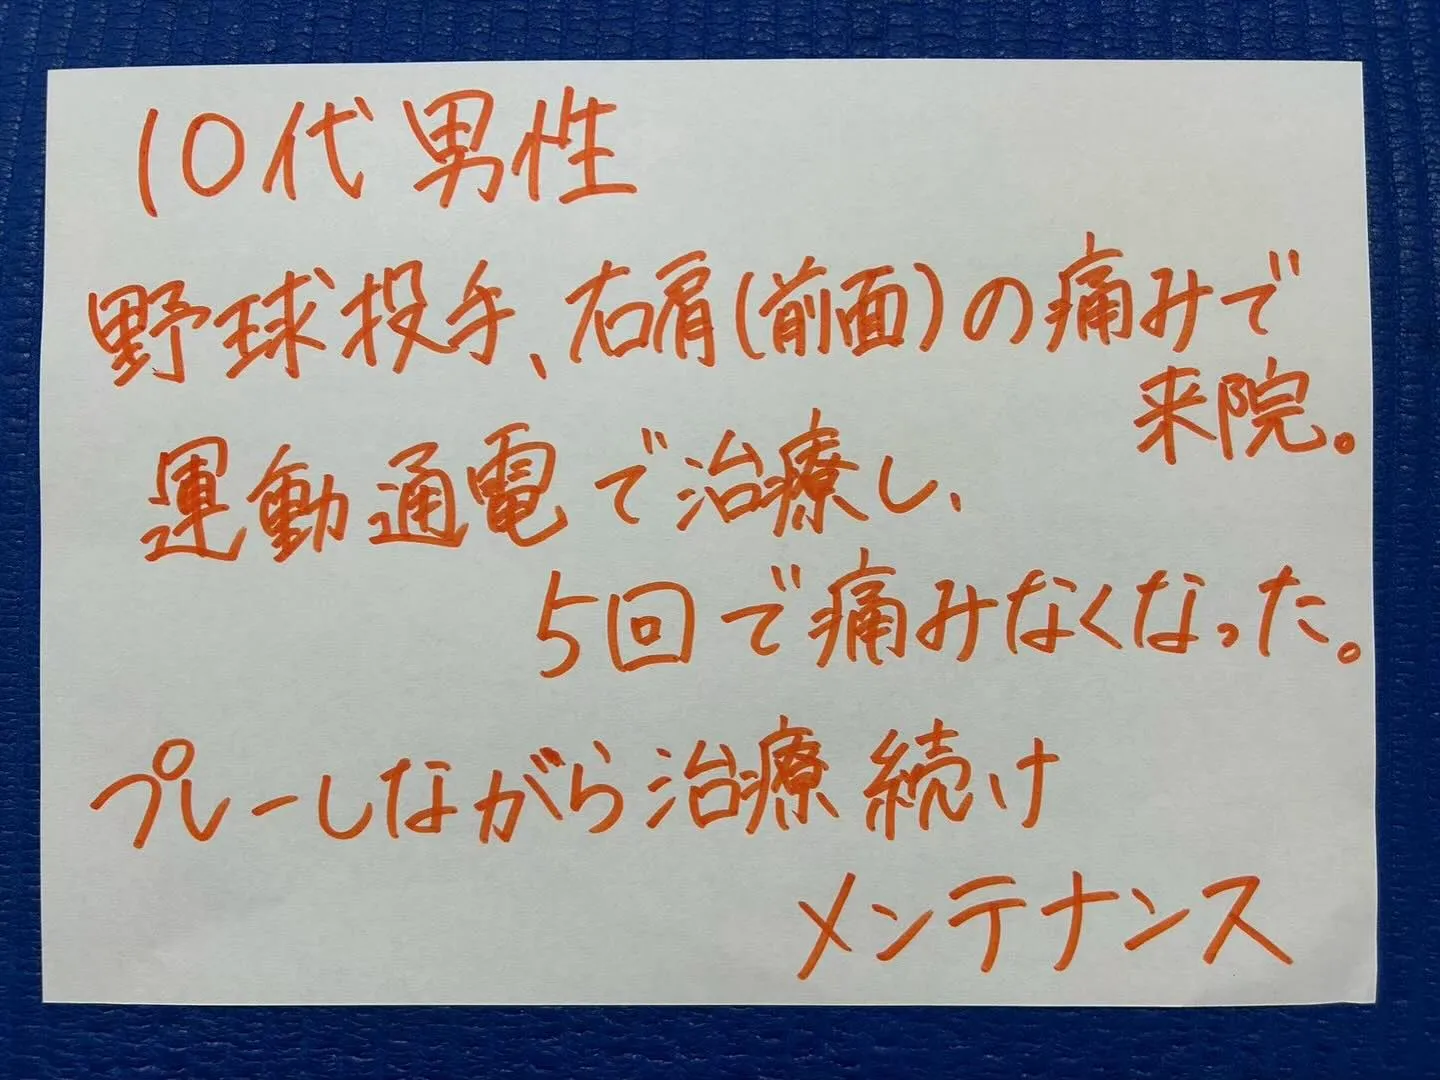 10代男性
野球投手、右肩(前面)の痛みで
来院。
運動通電で治療し、
5回で痛みなくなった。
プレーしながら治療続け
メンテナンス